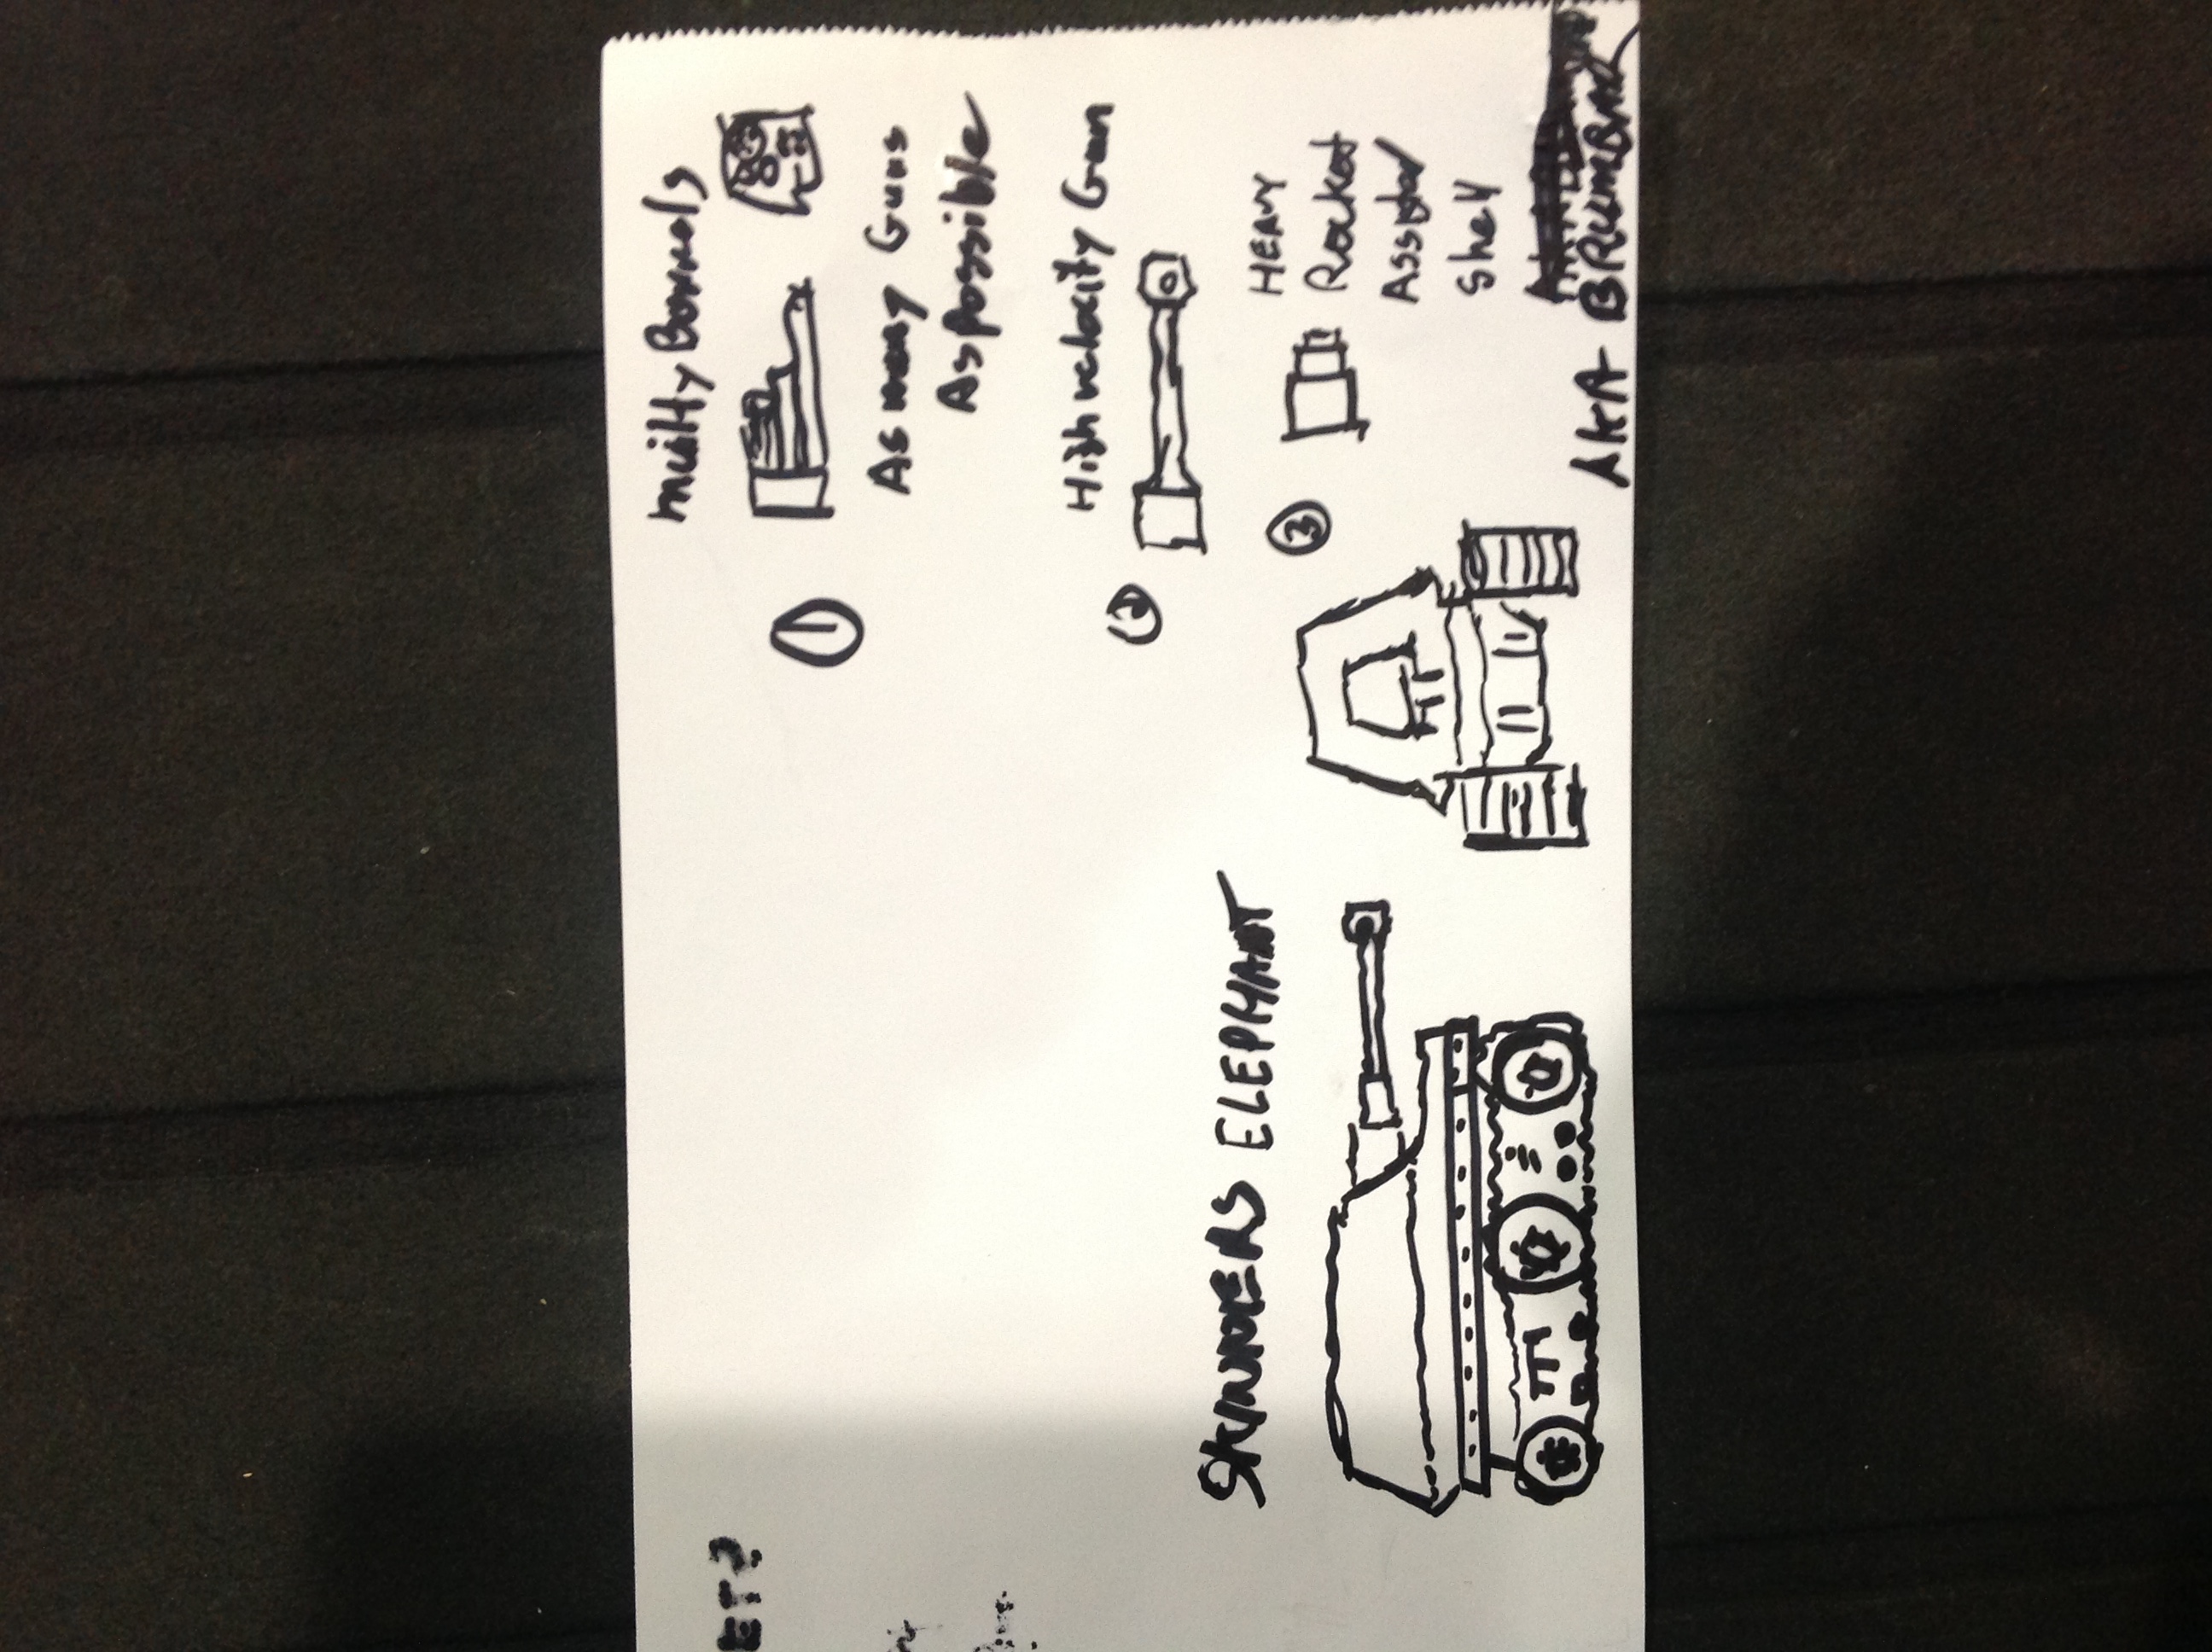 ①
Multty Barrels
As many Guns
As Possible
②
High velocity Gun
③
HEAVY
Rocket
Assisted
Shell
AKA BRUMBAR
SKINNERS ELEPHANT
ET?